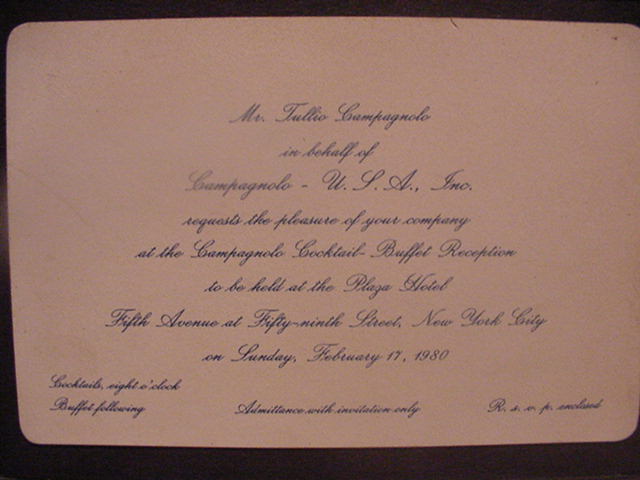 Mr. Tullio Campagnolo
in behalf of
Campagnolo - U. S. A., Inc.
requests the pleasure of your company
at the Campagnolo Cocktail-Buffet Reception
to be held at the Plaza Hotel
Fifth Avenue at Fifty-ninth Street, New York City
on Sunday, February 17, 1980
Cocktails, eight o'clock
Buffet following
Admittance with invitation only
R. s. v. p. enclosed